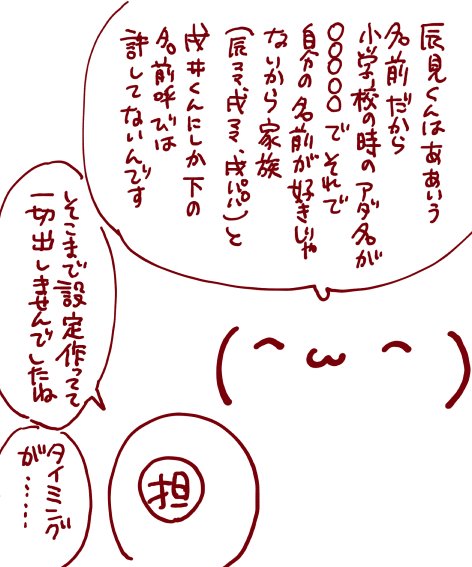 辰見くんはああいう
名前だから
小学校の時のアダ名が
〇〇〇〇〇でそれで
自分の名前が好きじゃ
ないから家族
(辰ママ、戌ママ、戌パパ)と
戌井くんにしか下の
名前呼びは
許してないんです
そこまで設定作ってて
一切出しませんでしたね
(^ω^)
担
タイミング
が……